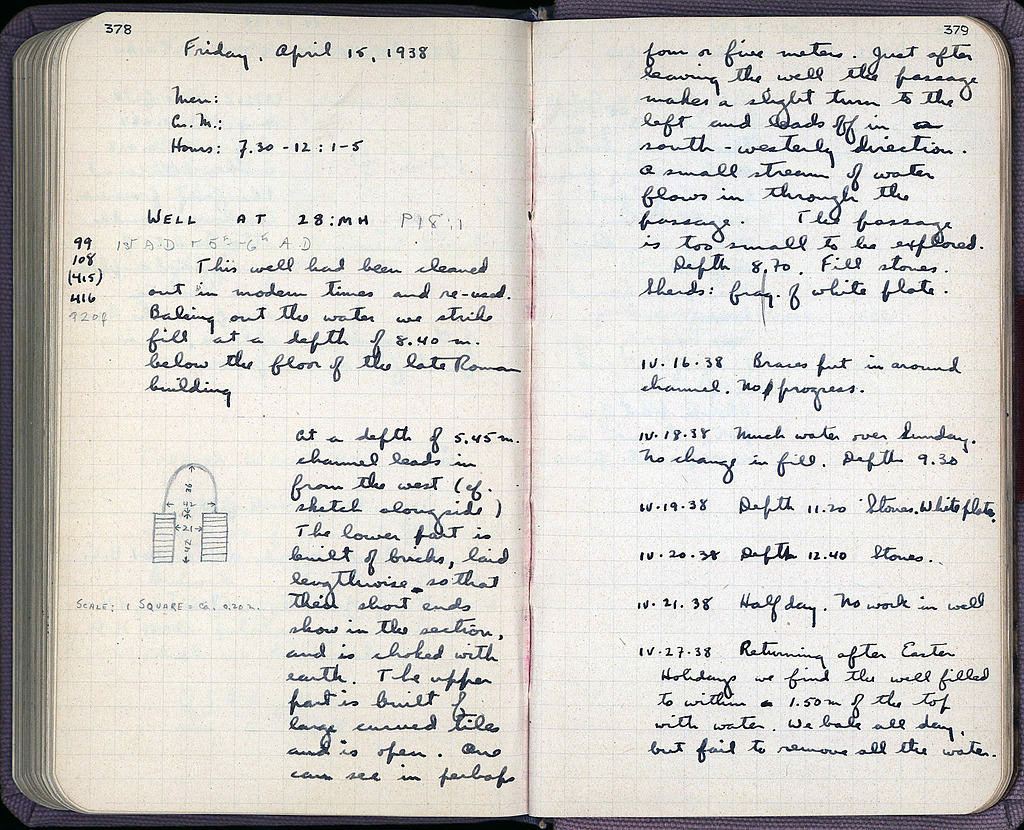 378
Friday, April 15, 1938
Men:
Cu. M.:
Hours: 7.30 - 12 : 1-5
WELL AT 28:MH P18:1
99 1st A.D + 5th-6th A.D
108 This well had been cleaned
(415)
416 out in modern times and re-used.
920f Baling out the water we strike
fill at a depth of 8.40 m.
below the floor of the late Roman
building
At a depth of 5.45 m.
channel leads in
from the west (cf.
sketch alongside)
The lower part is
built of bricks, laid
lengthwise so that
their short ends
show in the section,
and is choked with
earth. The upper
part is built of
large curved tiles
and is open. One
can see in perhaps
36
42
21
42
SCALE: 1 SQUARE = ca. 0.20 m.
379
four or five meters. Just after
leaving the well the passage
makes a slight turn to the
left and leads off in a
south-westerly direction.
A small stream of water
flows in through the
passage. The passage
is too small to be explored.
Depth 8.70. Fill stones.
Sherds: frag. of white plate.
IV.16.38 Braces put in around
channel. No progress.
IV.18.38 Much water over Sunday.
No change in fill. Depth 9.30
IV.19.38 Depth 11.20 Stones. White plate.
IV.20.38 Depth 12.40 Stones.
IV.21.38 Half day. No work in well
IV.27.38 Returning after Easter
Holidays we find the well filled
to within 1.50 m of the top
with water. We bale all day,
but fail to remove all the water.